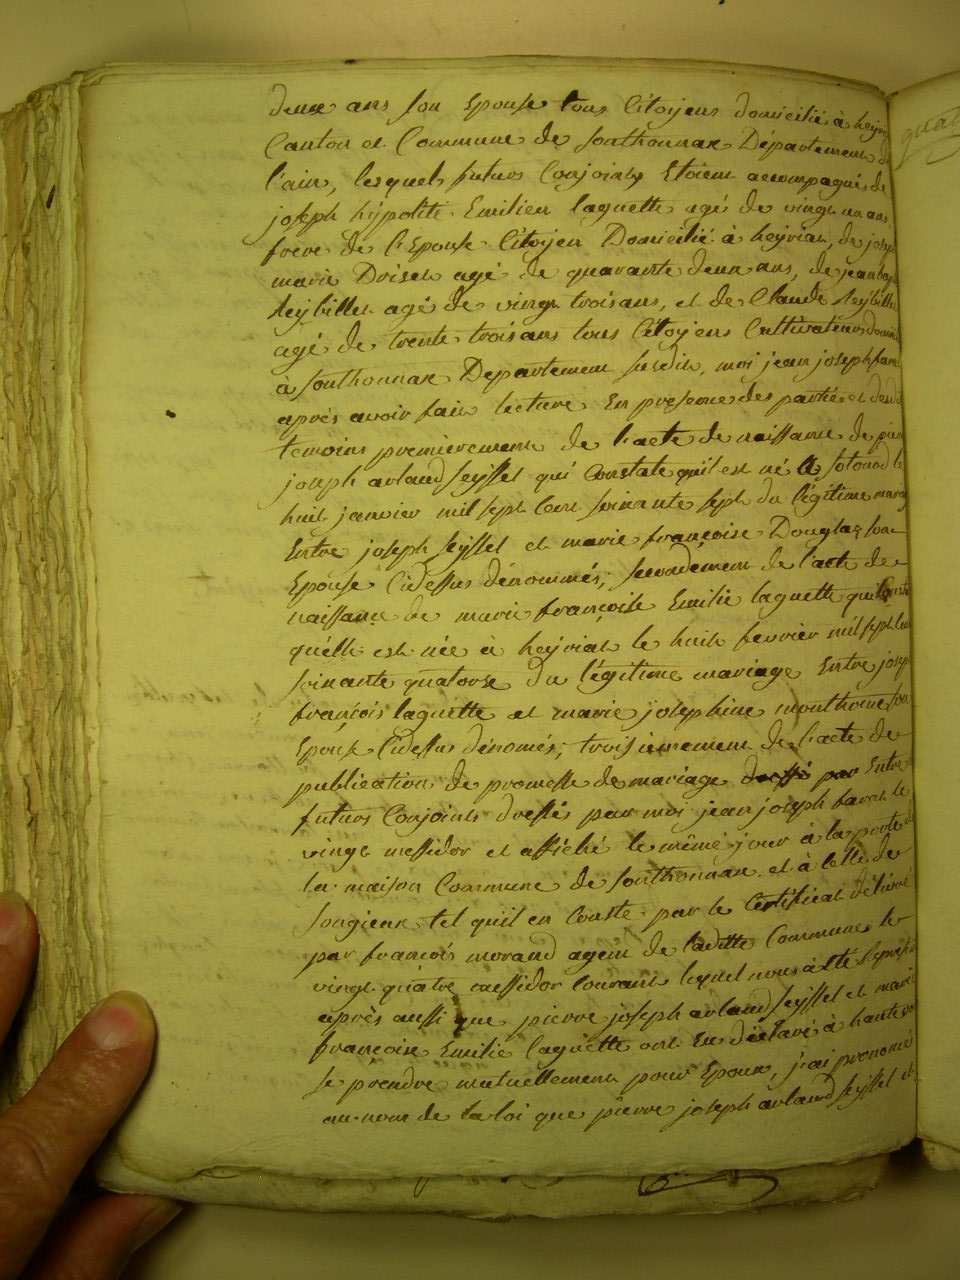 deux ans son Epouse tous Citoyens domicilié à heyria
Canton et Commune de Sonthonnax Département de
l'ain, lesquels futurs Conjoints Etoient accompagnés de
joseph hypolite Emilien laguette agé de vingt un ans
frere de l'Epouse Citoyen Domicilié à heyriat, de joseph
marie Doisen agé de quarante deux ans, de jean bap
Reybillet agé de vingt trois ans, et de Claude Reybillet
agé de trente trois ans tous Citoyens Cultivateurs domici
à Sonthonnax Departement susdit, moi jean joseph favre
après avoir fait lecture En presence des parties et desd
temoins premierement de l'acte de naissance de pierre
joseph arland Seyssel qui Constate qu'il est né à Sotonod le
huit janvier mil sept Cent soixante sept du légitime mariag
Entre joseph Seyssel et marie françoise Douglas son
Epouse Cidessus dénommés; secondement de l'acte de
naissance de marie françoise Emilie laguette qui Conste
qu'elle est née à heyriat le huit fevrier mil sept Cent
soixante quatorze du légitime mariage Entre joseph
françois laguette et marie josephine monthoux son
Epouse Cidessus dénomés; troisiemement de l'acte de
publication de promesse de mariage dressé par Entre
futurs Conjoints dressés par moi jean joseph favre le
vingt messidor et affiché le même jour à la porte de
la maison Commune de Sonthonnax et à celle de
Songieux tel qu'il en Conste par le Certificat délivré
par françois morand agent de laditte Commune le
vingt quatre messidor Courant lequel nous à été
après aussi que pierre joseph arland Seyssel et marie
françoise Emilie laguette ont En déclaré à haute voi
se prendre mutuellement pour Epoux, j'ai prononcé
au nom de la loi que pierre joseph arland Seyssel et